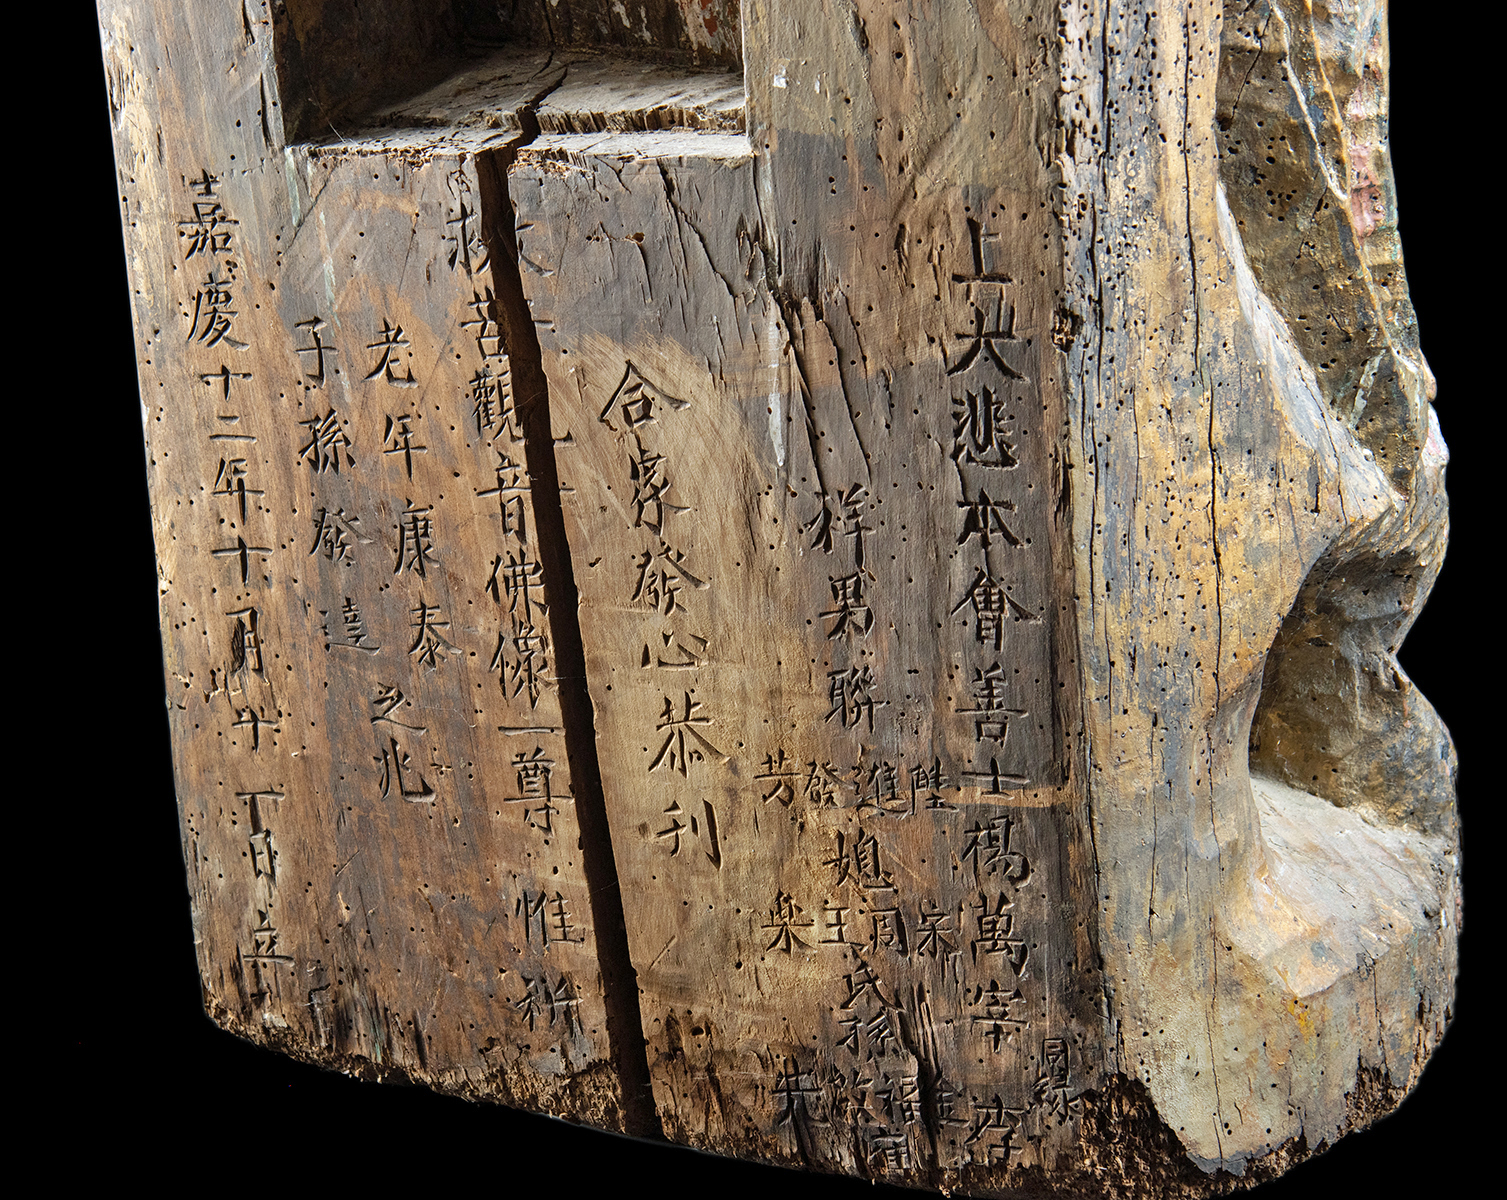 上大悲本會善士楊萬宰 李
同緣
祥男聯陞進發芳媳宋周王樂氏孫金福啟先
合家發心恭刋
救苦觀音佛像一尊 惟祈
老年康泰之兆
子孫發達
嘉慶十二年十月 丁日立